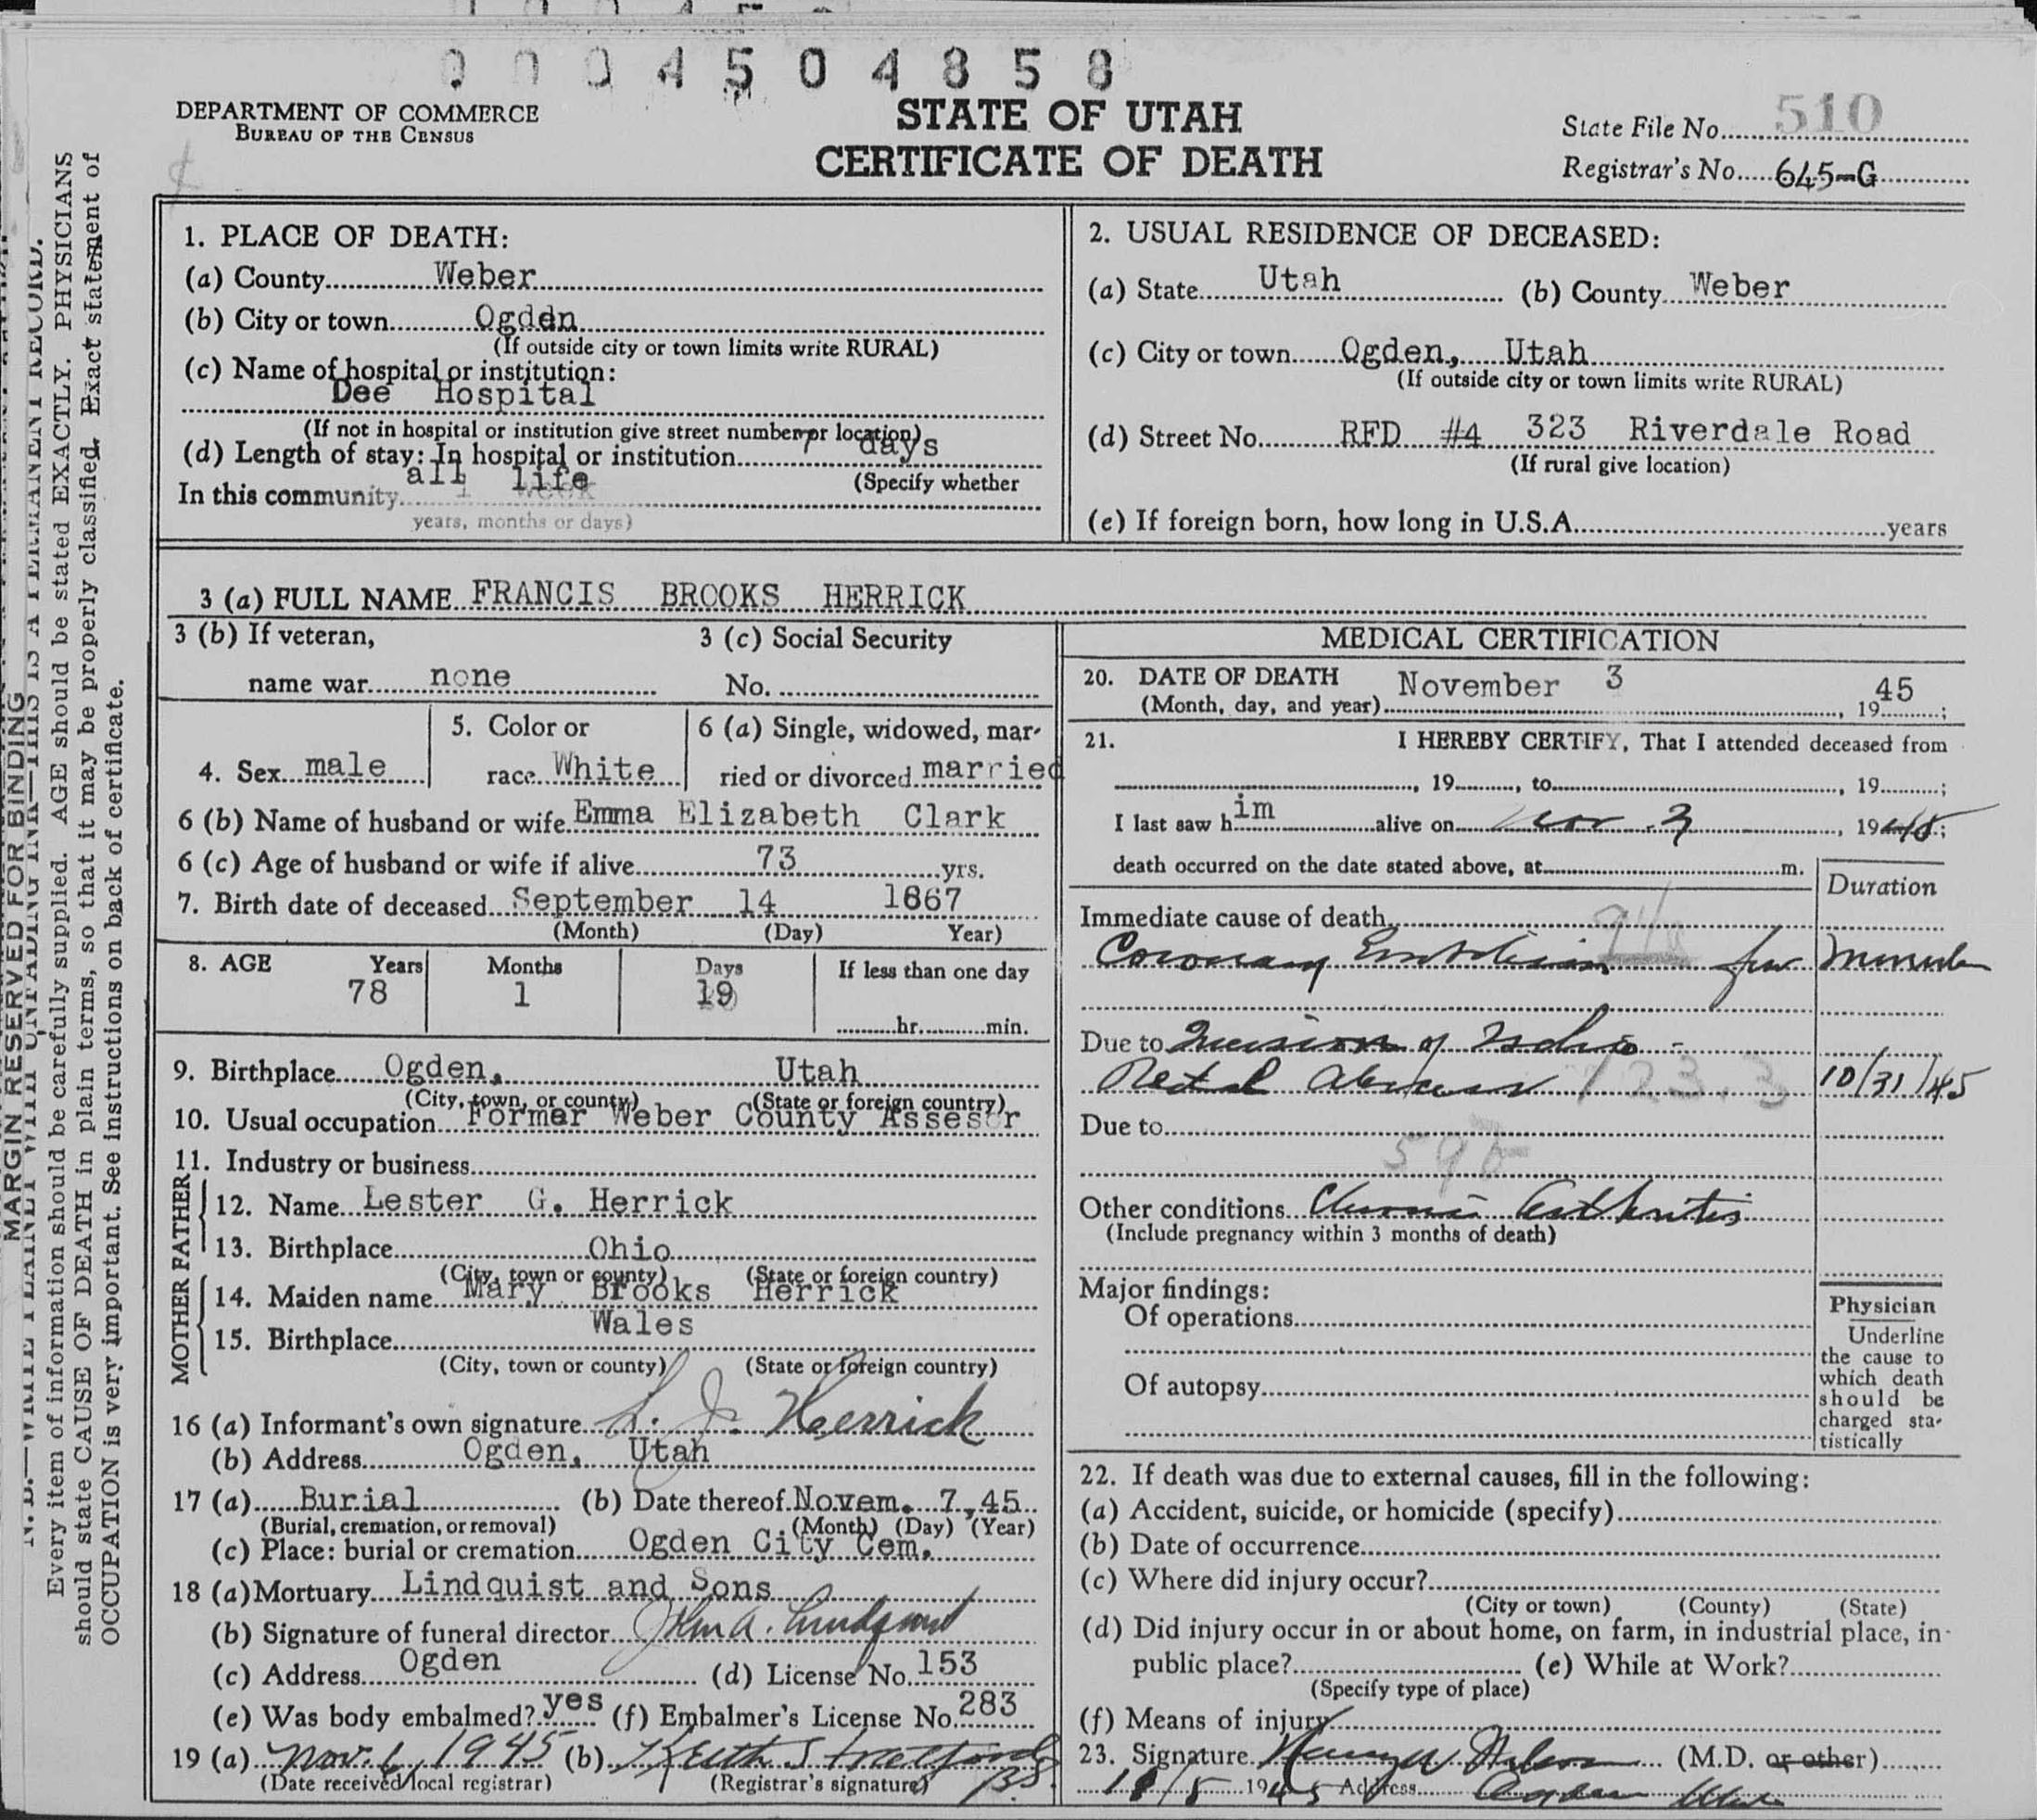 0004504858
DEPARTMENT OF COMMERCE
BUREAU OF THE CENSUS
STATE OF UTAH
CERTIFICATE OF DEATH
State File No. 510
Registrar's No. 645-G
MARGIN RESERVED FOR BINDING
N. B.—WRITE PLAINLY WITH UNFADING INK—THIS IS A PERMANENT RECORD.
Every item of information should be carefully supplied. AGE should be stated EXACTLY. PHYSICIANS
should state CAUSE OF DEATH in plain terms, so that it may be properly classified. Exact statement of
OCCUPATION is very important. See instructions on back of certificate.
1. PLACE OF DEATH:
(a) County Weber
(b) City or town Ogden
(If outside city or town limits write RURAL)
(c) Name of hospital or institution:
Dee Hospital
(If not in hospital or institution give street number or location)
(d) Length of stay: In hospital or institution 7 days
In this community all life
(Specify whether
years, months or days)
2. USUAL RESIDENCE OF DECEASED:
(a) State Utah (b) County Weber
(c) City or town Ogden, Utah
(If outside city or town limits write RURAL)
(d) Street No. RFD #4 323 Riverdale Road
(If rural give location)
(e) If foreign born, how long in U.S.A. years
3 (a) FULL NAME FRANCIS BROOKS HERRICK
3 (b) If veteran,
name war none
3 (c) Social Security
No.
4. Sex male
5. Color or
race White
6 (a) Single, widowed, mar-
ried or divorced married
6 (b) Name of husband or wife Emma Elizabeth Clark
6 (c) Age of husband or wife if alive 73 yrs.
7. Birth date of deceased September 14 1867
(Month) (Day) Year)
8. AGE Years Months Days If less than one day
78 1 19
hr. min.
9. Birthplace Ogden, Utah
(City, town, or county) (State or foreign country)
10. Usual occupation Former Weber County Assesor
11. Industry or business
FATHER
12. Name Lester G. Herrick
13. Birthplace Ohio
(City, town or county) (State or foreign country)
MOTHER
14. Maiden name Mary Brooks Herrick
15. Birthplace Wales
(City, town or county) (State or foreign country)
16 (a) Informant's own signature L. J. Herrick
(b) Address Ogden, Utah
17 (a) Burial (b) Date thereof Novem. 7, 45
(Burial, cremation, or removal) (Month) (Day) (Year)
(c) Place: burial or cremation Ogden City Cem.
18 (a) Mortuary Lindquist and Sons
(b) Signature of funeral director John A. Lindquist
(c) Address Ogden (d) License No. 153
(e) Was body embalmed? yes (f) Embalmer's License No. 283
19 (a) Nov. 6, 1945 (b) Keith Stratford
(Date received local registrar) (Registrar's signature) BS.
MEDICAL CERTIFICATION
20. DATE OF DEATH November 3
(Month, day, and year) , 1945;
21. I HEREBY CERTIFY, That I attended deceased from
, 19 , to , 19 ;
I last saw him alive on Nov. 3, 1945;
death occurred on the date stated above, at m.
Duration
Immediate cause of death 94a
Coronary Embolism few Minutes
Due to Incision of Ischio-
Rectal Abscess 123.3 10/31/45
Due to
Other conditions Chronic Arthritis
(Include pregnancy within 3 months of death)
Major findings:
Of operations
Of autopsy
Physician
Underline
the cause to
which death
should be
charged sta-
tistically
22. If death was due to external causes, fill in the following:
(a) Accident, suicide, or homicide (specify)
(b) Date of occurrence
(c) Where did injury occur?
(City or town) (County) (State)
(d) Did injury occur in or about home, on farm, in industrial place, in
public place? (e) While at Work?
(Specify type of place)
(f) Means of injury
23. Signature (M.D. or other)
1945 Address Ogden Utah